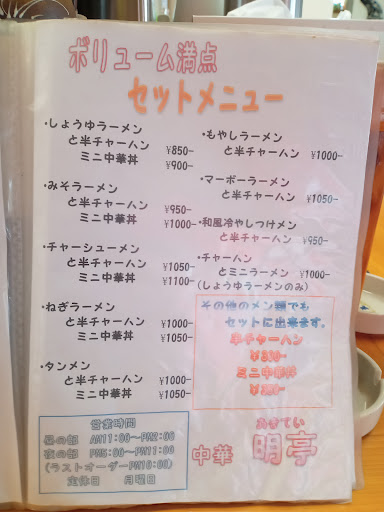 ボリューム満点
セットメニュー
・しょうゆラーメン
と半チャーハン ¥850-
ミニ中華丼 ¥900-
・みそラーメン
と半チャーハン ¥950-
ミニ中華丼 ¥1000-
・チャーシューメン
と半チャーハン ¥1050-
ミニ中華丼 ¥1100-
・ねぎラーメン
と半チャーハン ¥1000-
ミニ中華丼 ¥1050-
・タンメン
と半チャーハン ¥1000-
ミニ中華丼 ¥1050-
・もやしラーメン
と半チャーハン ¥1000-
・マーボーラーメン
と半チャーハン ¥1050-
・和風冷やしつけメン
と半チャーハン ¥950-
・チャーハン
とミニラーメン ¥1000-
(しょうゆラーメンのみ)
その他のメン類でも
セットに出来ます。
半チャーハン
ミニ中華丼
営業時間
昼の部 AM11:00~PM2:00
夜の部 PM5:00~PM11:00
(ラストオーダーPM10:00)
定休日 月曜日
あきてい
中華 明亭